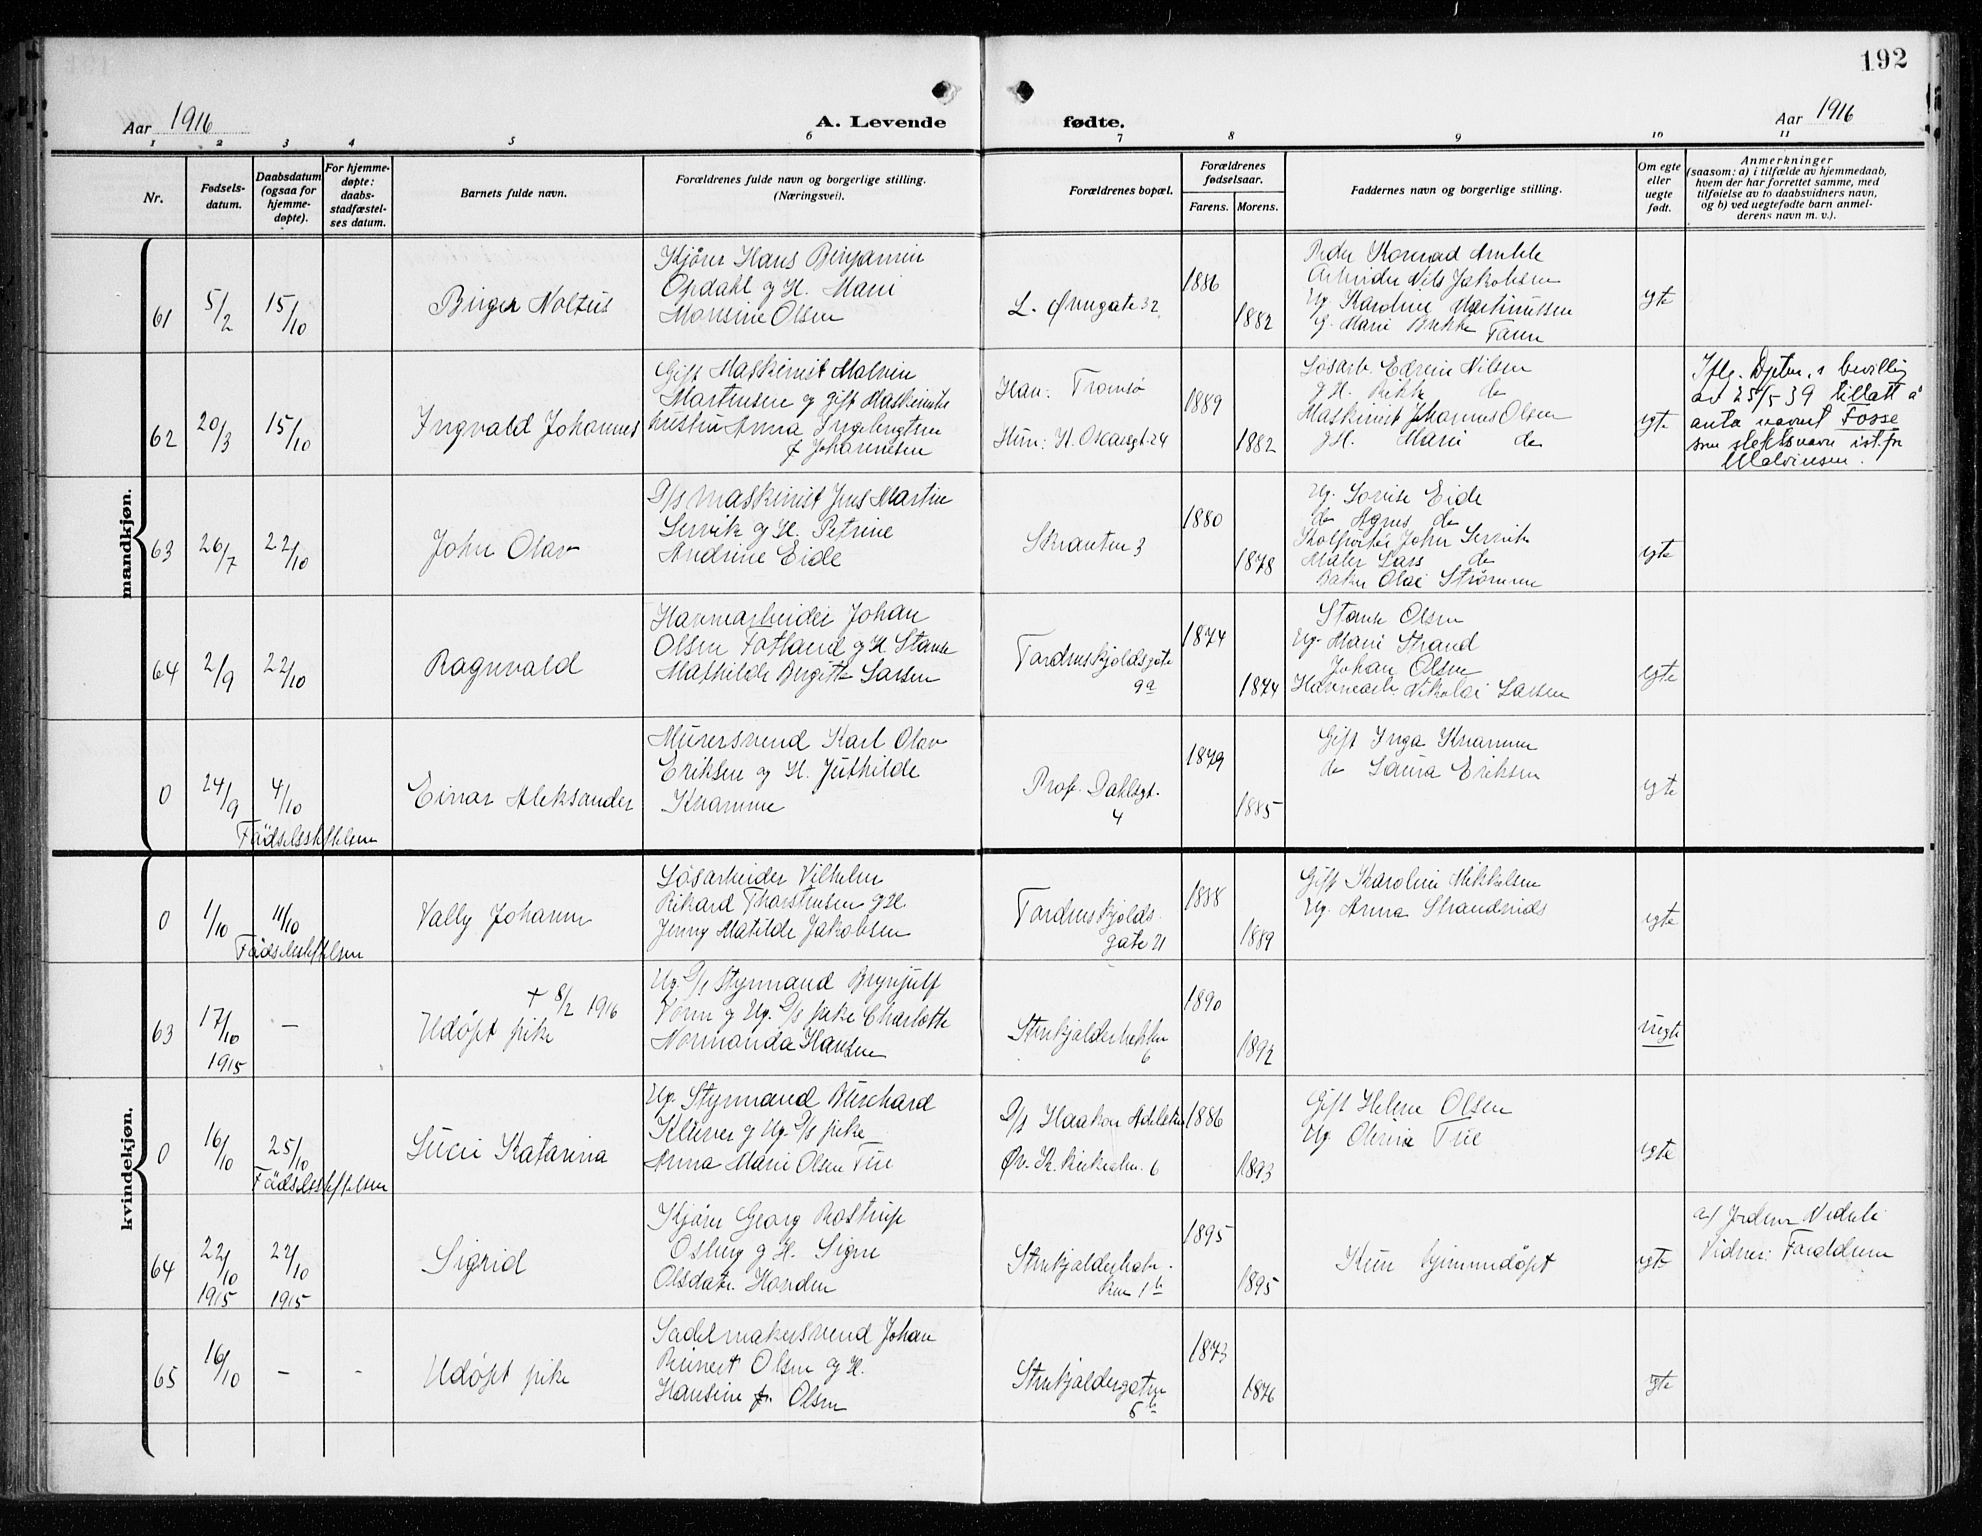 192
Aar 1916
A. Levende
fødte.
Aar 1916
1 2 3 4 5 6 7 8 9 10 11
Nr.
Fødsels-
datum.
Daabsdatum
(ogsaa for
hjemme-
døpte).
For hjemme-
døpte:
daabs-
stadfæstel-
ses datum.
Barnets fulde navn.
Forældrenes fulde navn og borgerlige stilling.
(Næringsvei).
Forældrenes bopæl.
Forældrenes
fødselsaar.
Farens. Morens.
Faddernes navn og borgerlige stilling.
Om egte
eller
uegte
født.
Anmerkninger
(saasom: a) i tilfælde av hjemmedaab,
hvem der har forrettet samme, med
tilføielse av to daabsvidners navn,
og b) ved uegtefødte barn anmel-
derens navn m. v.).
mandkjøn.
61
5/2
15/10
Birger Noltus
Kjører Hans Benjamin
Opdahl og H. Marie
Monsine Olsen
L. Øvregate 32
1886
1882
Peder Konrad
Arbeider Nils Jakobsen
Ug. Karoline Martinussen
G. Marie Brekke
Faren
egte
62
20/3
15/10
Ingvald Johannes
Gift Maskinist Malvin
Martinsen og gift Maskinists
hustru Anna Ingebrigtsen
f. Johannesen
Han: Tromsø
Hun: K. Oscarsgt. 24
1889
1882
Løsarb. Edvin Nilsen
g. H. Rikke do
Maskinist Johannes Olsen
g. H. Marie do
egte
Iflg. Dptm.s bevilling
av 25/5 39 tillatt å
anta navnet Fosse
som slektsnavn ist. for
Malvinsen.
63
26/7
22/10
John Olav
D/s Maskinist Jens Martin
Servik og H. Petrine
Andrine Eide
Skranten 3
1880
1878
Ug. Lovise Eide
do Agnes do
John Servik
Maler Lars do
Baker Olai Strømmen
egte
64
2/9
22/10
Ragnvald
Havnearbeider Johan
Olsen Fotland og H.
Mathilde Bergitte Larsen
Tordenskjoldsgate
9a
1874
1874
Olsen
Ug. Marie Strand
Johan Olsen
Havnearb. Nikolai Larsen
egte
0
24/9
4/10
Fødselsstiftelsen
Einar Aleksander
Murersvend Karl Olav
Eriksen og H. Juthilde
Knamme
Prof. Dahlsgt.
4
1879
1885
Gift Inga Knamme
do Laura Eriksen
egte
kvindekjøn.
0
1/10
11/10
Fødselsstiftelsen
Vally Johanne
Løsarbeider Vilhelm
Rikard Thorstensen g. H.
Jenny Matilde Jakobsen
Tordenskjolds-
gate 21
1888
1889
Gift Karoline Mikkelsen
Ug. Anna Strandnæs
egte
63
17/10
1915
—
+ 8/2 1916
Udøpt pike
Ug. D/s Styrmand Brynjulf
Vorm og Ug. D/s pike Charlotte
Normanda Hansen
Stenkjelderbakken
6
1890
1892
uegte
0
16/10
25/10
Fødselsstiftelsen
Lucie Katarina
Ug. Styrmand Burchard
Klüver og Ug. D/s pike
Anna Marie Olsen Tue
D/s Haakon Adelsten
Øv. K. 6
1886
1893
Gift Helene Olsen
Ug. Oline Tue
egte
64
22/10
1915
22/10
1915
Sigrid
Kjører Georg Rostrup
Osberg g. H. Signe
Olsdatr. Honden
Stenkjelderbak-
ken 1 b
1895
1895
Kun hjemmedøpt
egte
a/ Jordmor
Vidner: Forældrene
65
16/10
-
-
Udøpt pike
Sadelmakersvend Johan
Reinert Olsen og H.
Hansine f. Olsen
Stenkjeldergaten
5 b
1873
1876
egte